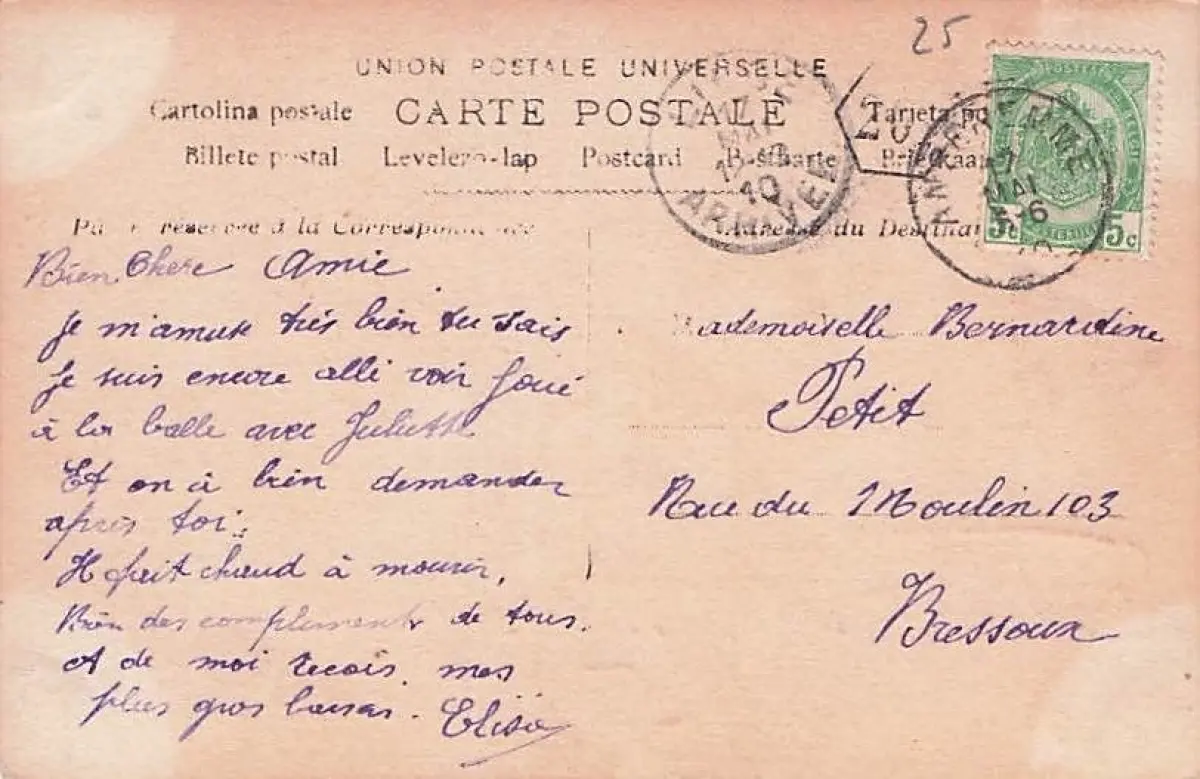 25
UNION POSTALE UNIVERSELLE
Cartolina postale CARTE POSTALE Tarjeta po
Billete postal Levelezo-lap Postcard Postkarte Briefkaart
Partie réservée à la Correspondance
Adresse du Destinataire
ARRIVEE
10
20
MAI
10
5c 5c
Bien Chere Amie
Je m'amuse très bien tu sais
Je suis encore allé voir Joué
à la balle avec Juliette
Et on à bien demander
après toi.
Il fait chaud à mourir,
Bien des compliments de tous.
et de moi recois mes
plus gros baisers. Elisa
Mademoiselle Bernardine
Petit
Rue du Moulin 103
Bressoux